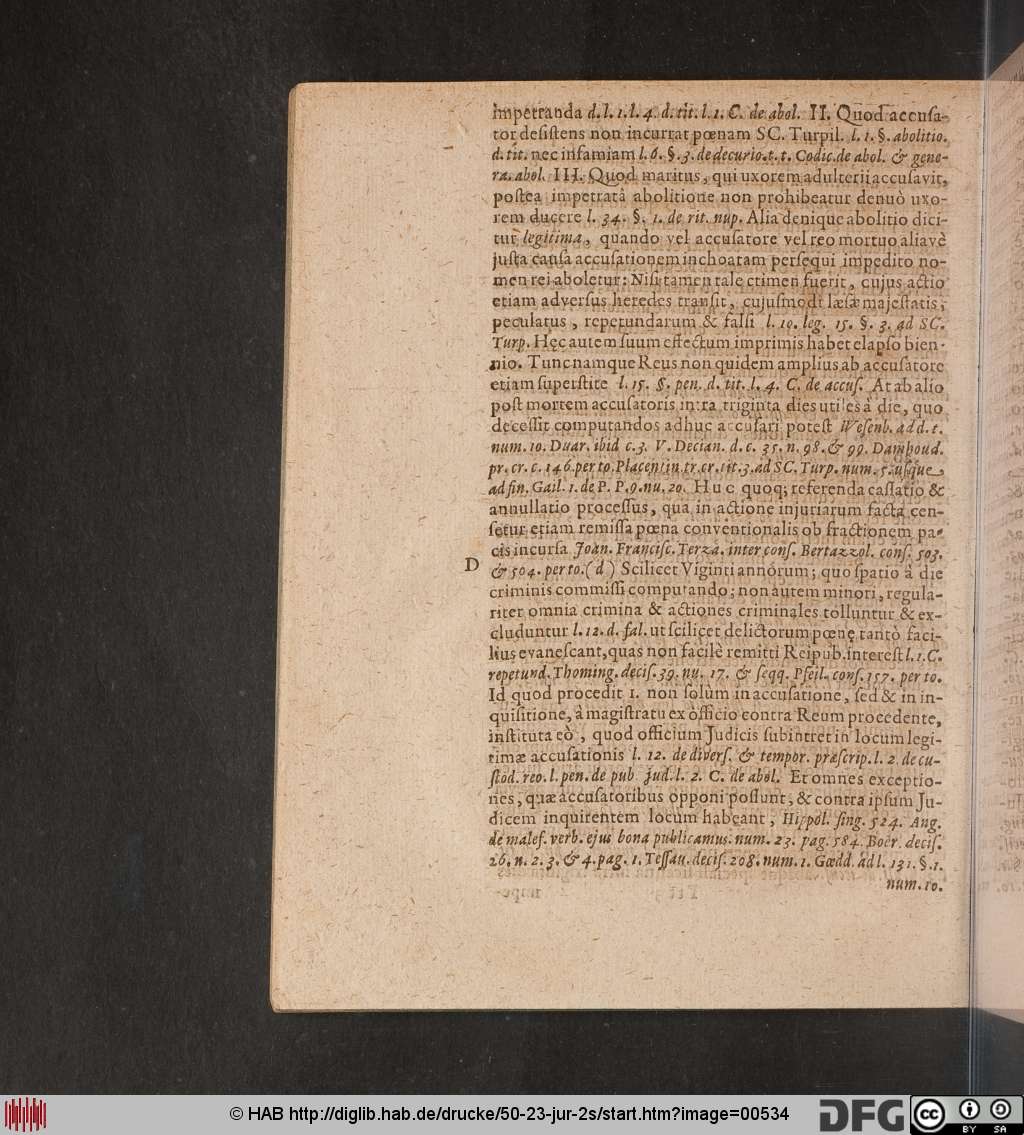 impetranda d. l. 1. l. 4. d. tit. l. 1. C. de abol. II. Quod accusa-
tor desistens non incurrat pœnam SC. Turpil. l. 1. §. abolitio.
d. tit. nec infamiam l. 6. §. 3. de decurio. t. t. Codic. de abol. & gene-
ra. abol. III. Quod maritus, qui uxorem adulterii accusavit,
postea impetratâ abolitione non prohibeatur denuò uxo-
rem ducere l. 34. §. 1. de rit. nup. Alia denique abolitio dici-
tur legitima, quando vel accusatore vel reo mortuo aliavè
justa causa accusationem inchoatam persequi impedito no-
men rei aboletur: Nisi tamen tale crimen fuerit, cujus actio
etiam adversus heredes transit, cujusmodi læsæ majestatis,
peculatus, repetundarum & falsi l. 10. leg. 15. §. 3. ad SC.
Turp. Hęc autem suum effectum imprimis habet elapso bien-
nio. Tunc namque Reus non quidem amplius ab accusatore
etiam superstite l. 15. §. pen. d. tit. l. 4. C. de accus. At ab alio
post mortem accusatoris intra triginta dies utiles à die, quo
decessit computandos adhuc accusari potest Wesenb. ad d. t.
num. 10. Duar. ibid c. 3. V. Decian. d. c. 35. n. 98. & 99. Damhoud.
pr. cr. c. 146. per to. Placent in tr. cr. tit. 3. ad SC. Turp. num. 5. usque
ad fin. Gail. 1. de P. P. 9. nu. 20. Huc quoq; referenda cassatio &
annullatio processus, qua in actione injuriarum facta cen-
setur etiam remissa pœna conventionalis ob fractionem pa-
cis incursa Joan. Francisc. Terza. inter cons. Bertazzol. cons. 503.
D & 504. per to. (d) Scilicet Viginti annorum; quo spatio à die
criminis commissi computando; non autem minori, regula-
riter omnia crimina & actiones criminales tolluntur & ex-
cluduntur l. 12. d. fal. ut scilicet delictorum pœnę tantò faci-
lius evanescant, quas non facilè remitti Reipub. interest l. 1. C.
repetund. Thoming. decis. 39. nu. 17. & seqq. Pfeil. cons. 157. per to.
Id quod procedit 1. non solùm in accusatione, sed & in in-
quisitione, à magistratu ex officio contra Reum procedente,
instituta eò, quod officium Judicis subintret in locum legi-
timæ accusationis l. 12. de divers. & tempor. præscrip. l. 2. de cu-
stod. reo. l. pen. de pub. jud. l. 2. C. de abol. Et omnes exceptio-
nes, quæ accusatoribus opponi possunt, & contra ipsum Ju-
dicem inquirentem locum habeant, Hippol. sing. 524. Ang.
de malef. verb. ejus bona publicamus. num. 23. pag. 584. Boër. decis.
26. n. 2. 3. & 4. pag. 1. Tessau. decis. 208. num. 1. Gœdd. ad l. 131. §. 1.
num. 10.
© HAB http://diglib.hab.de/drucke/50-23-jur-2s/start.htm?image=00534
DFG
cc BY SA